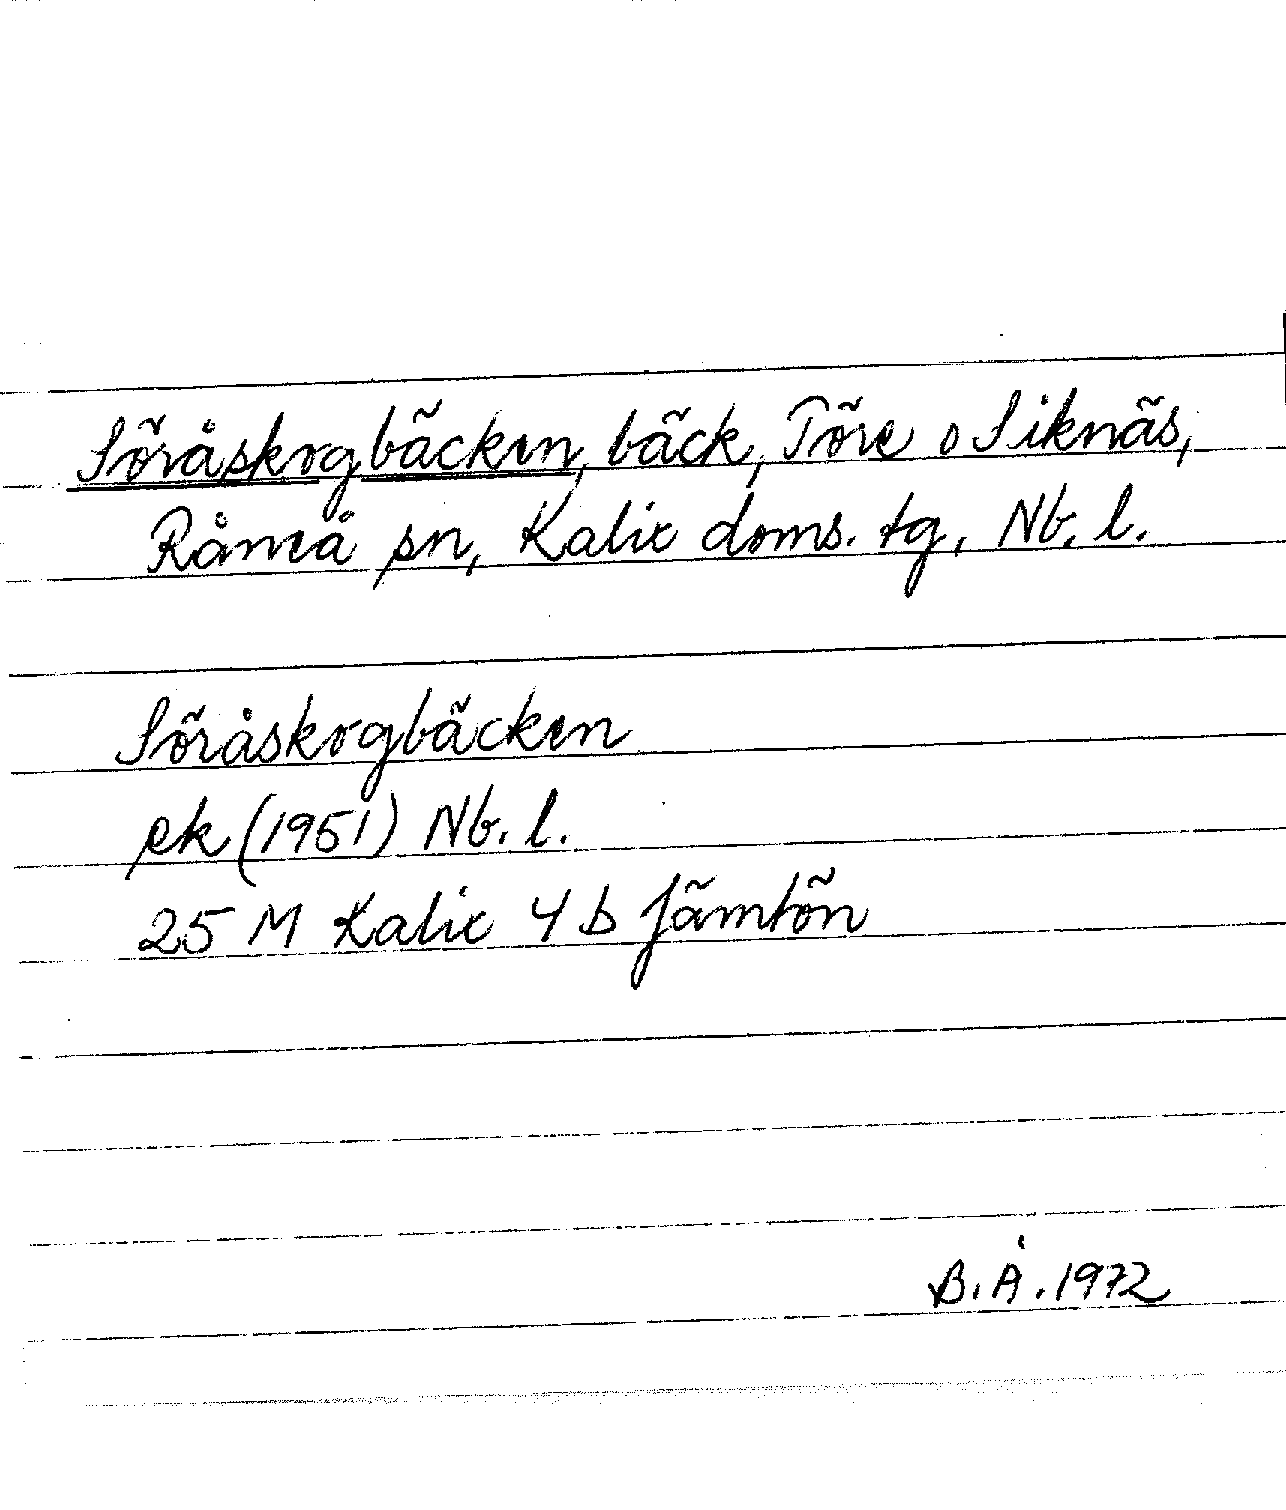 Söråskogbäcken, bäck, Töre o Siknäs,
Råneå sn, Kalix doms. tg, Nb. l.
Söråskogbäcken
ek (1951) Nb. l.
25 M Kalix 4 b Jämtön
B. Å. 1972